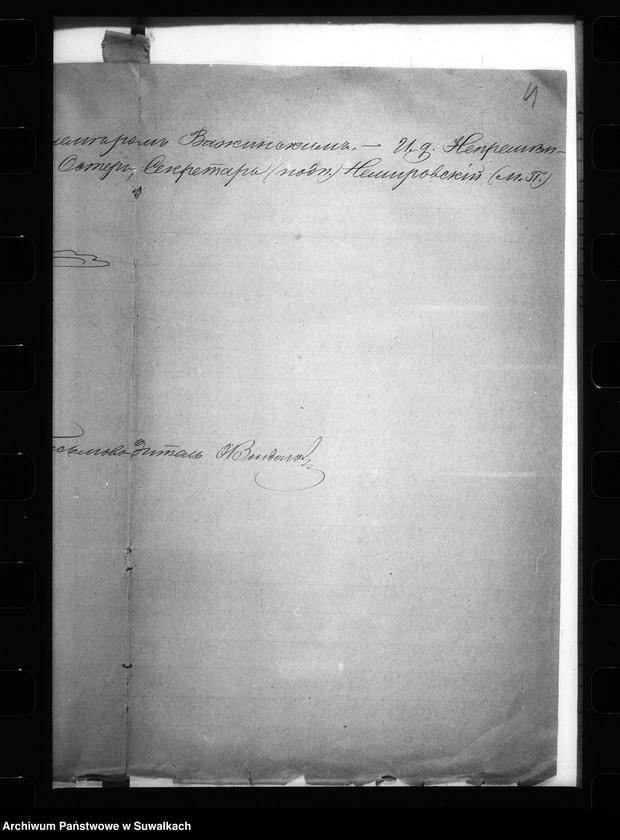 4
лентаромъ Важинскимъ. – И. д. Непремѣн-
Остенъ, Секретарь (подп.) Немировскій (М.П.)
сьмоводитель
Archiwum Państwowe w Suwałkach